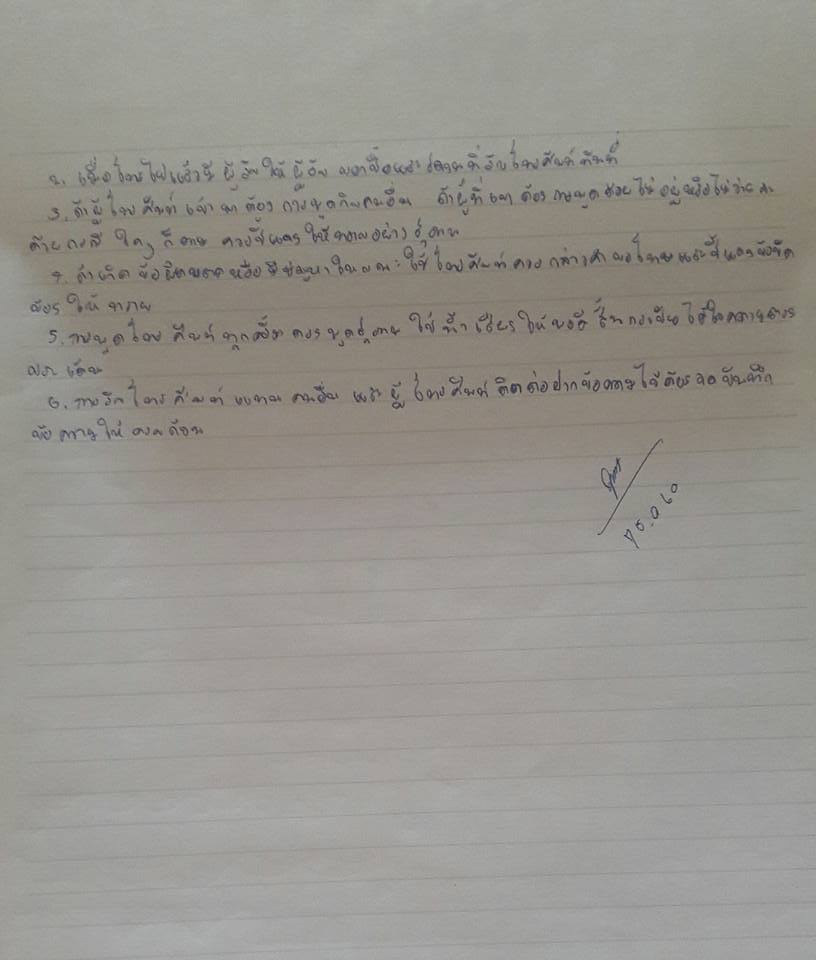 2. เมื่อโทรไปแล้วมีผู้รับให้ผู้รับบอกชื่อและสถานที่รับโทรศัพท์ทันที
3. ถ้าผู้โทรศัพท์เข้ามาต้องการพูดกับคนอื่น ถ้าผู้ที่เขาต้องการพูดด้วยไม่อยู่หรือไม่ว่าง
ด้วยกรณีใดๆ ก็ตาม ควรชี้แจงให้ทราบอย่างสุภาพ
4. ถ้าเกิดข้อผิดพลาดหรือมีปัญหาในขณะใช้โทรศัพท์ควรกล่าวคำขอโทษและชี้แจงข้อขัด
ข้องให้ทราบ
5. การพูดโทรศัพท์ทุกครั้งควรพูดสุภาพ ใช้น้ำเสียงให้พอดี สั้นกระชับ ได้ใจความตรง
ประเด็น
6. การรับโทรศัพท์แทนคนอื่น และผู้โทรศัพท์ติดต่อฝากข้อความไว้ต้องจดบันทึก
ข้อความให้ครบถ้วน